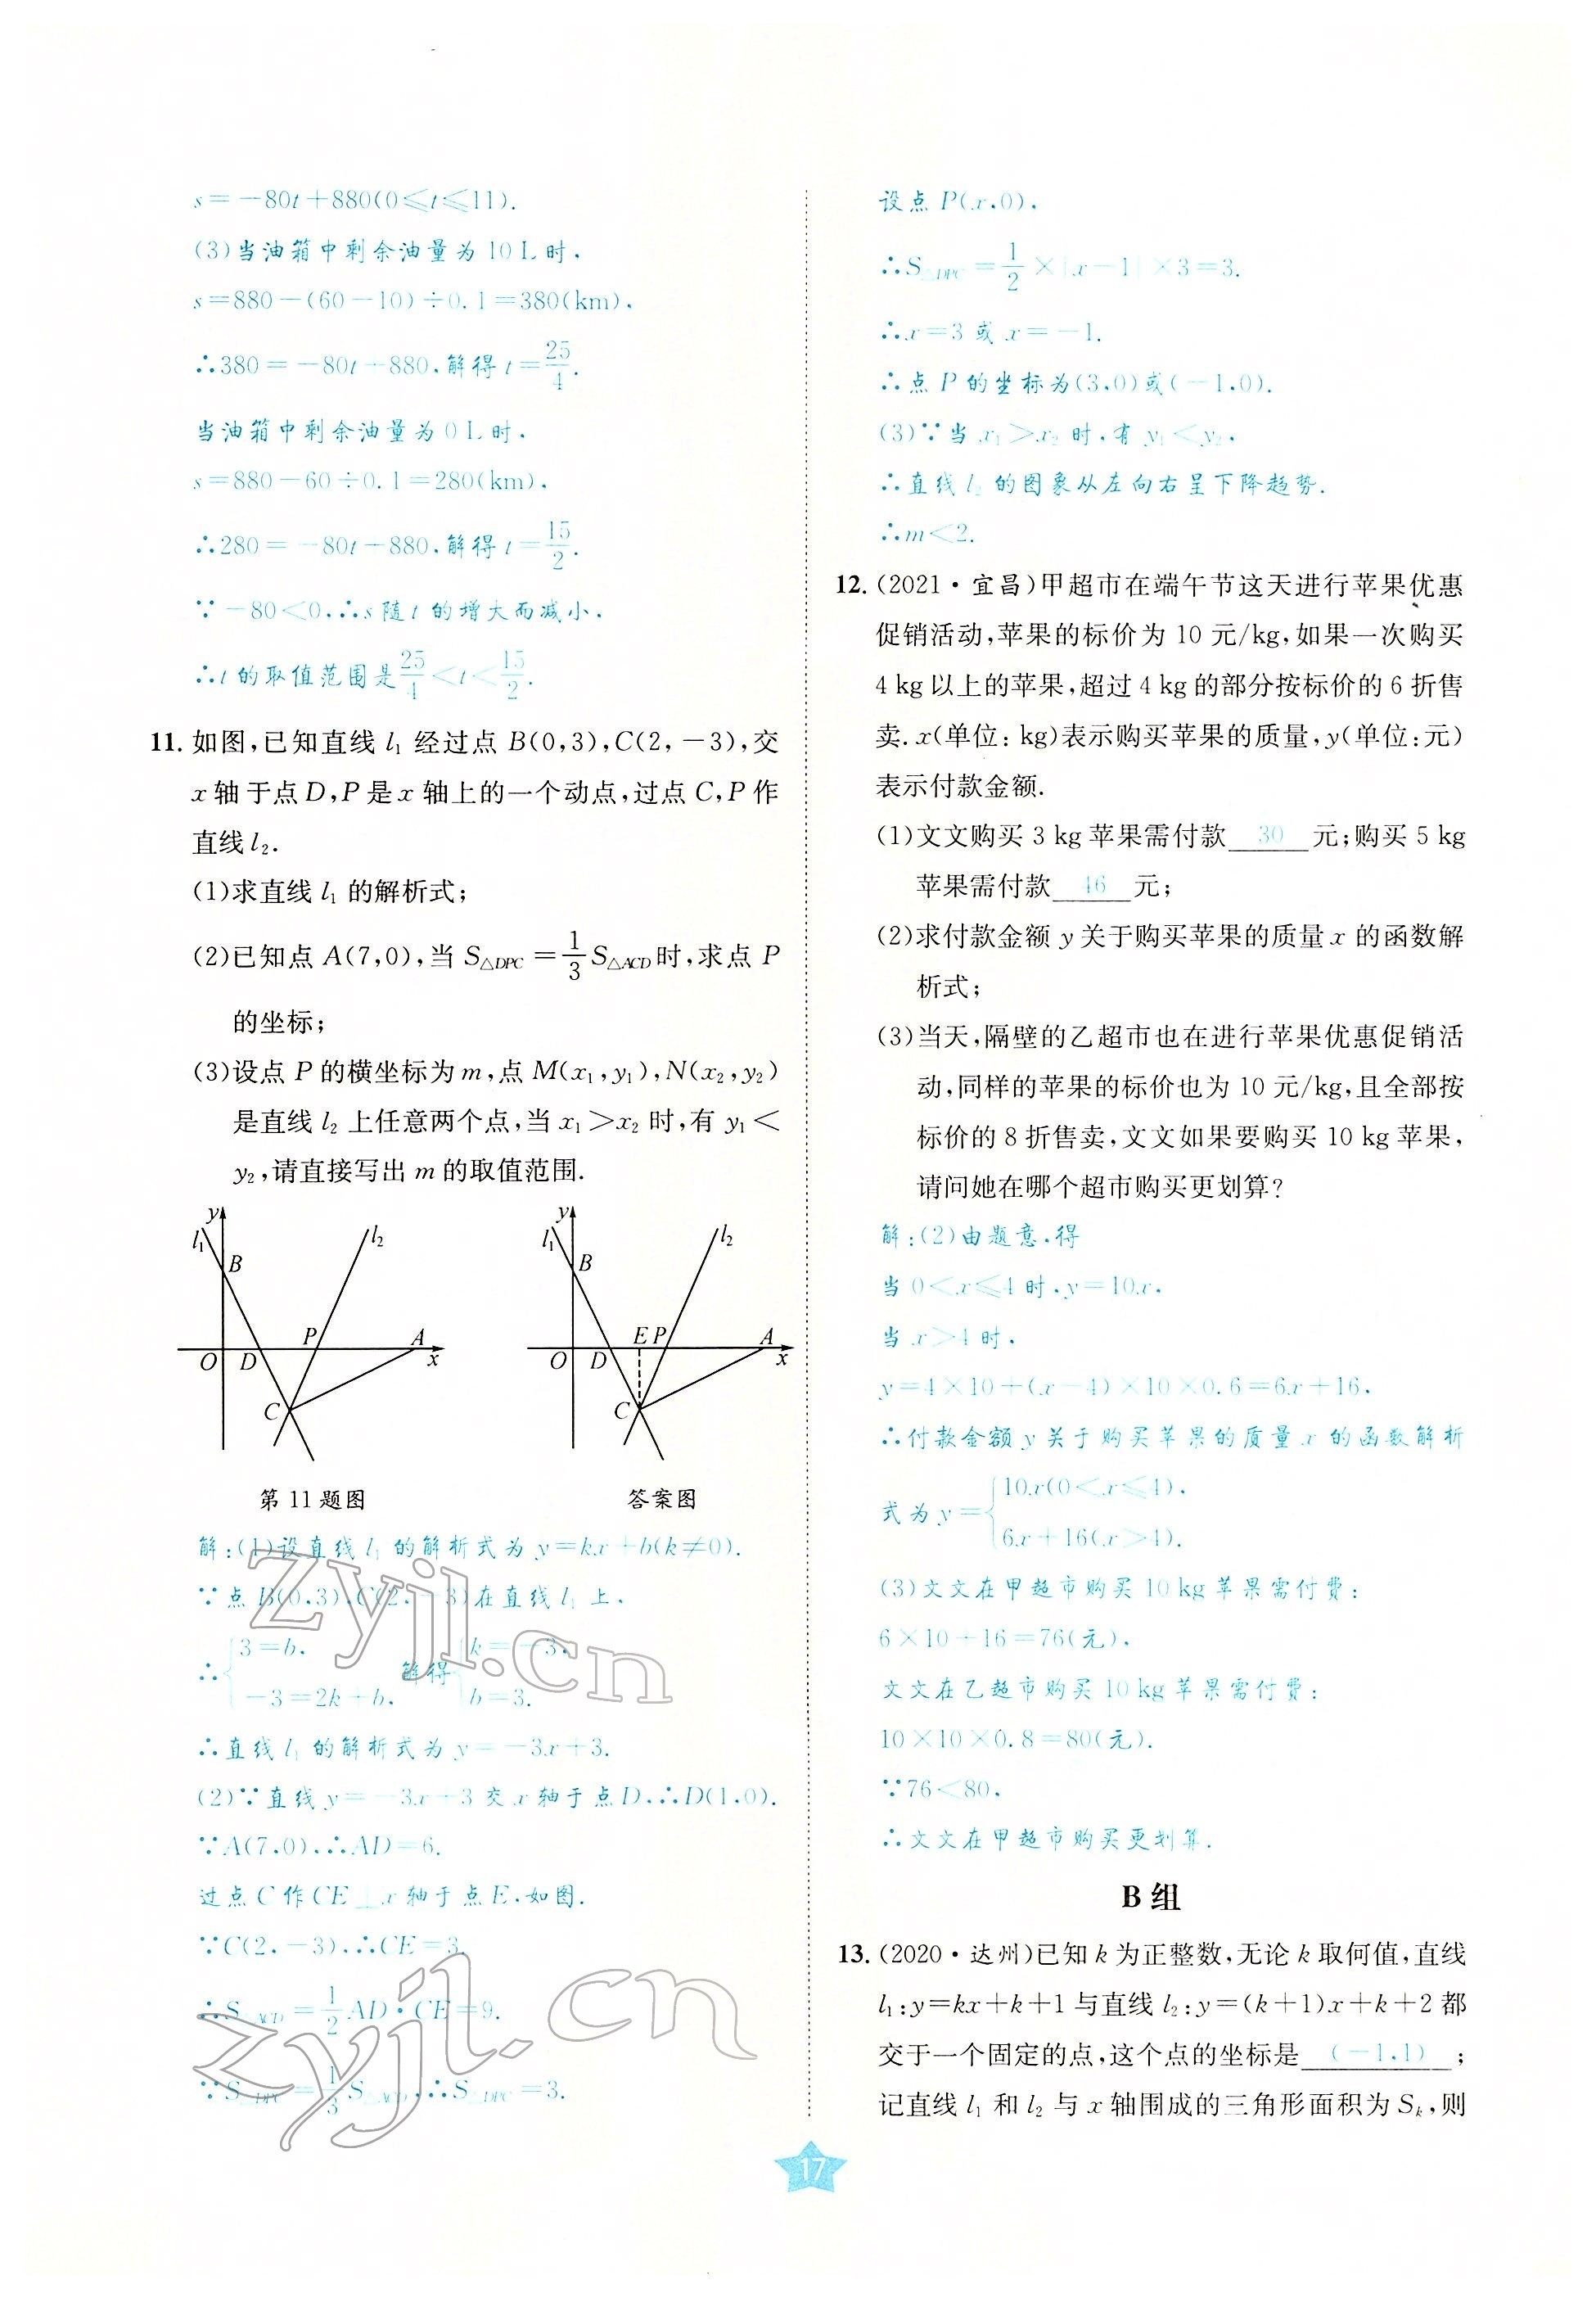 s=-80t+880(0≤t≤11).
(3)当油箱中剩余油量为10 L时,
s=880-(60-10)÷0.1=380(km),
∴380=-80t+880,解得t=25/4.
当油箱中剩余油量为0 L时,
s=880-60÷0.1=280(km),
∴280=-80t+880,解得t=15/2.
∵-80<0,∴s随t的增大而减小,
∴t的取值范围是25/4<t<15/2.
11. 如图,已知直线l₁经过点B(0,3),C(2,-3),交
x轴于点D,P是x轴上的一个动点,过点C,P作
直线l₂.
(1)求直线l₁的解析式;
(2)已知点A(7,0),当S△DPC=1/3 S△ACD时,求点P
的坐标;
(3)设点P的横坐标为m,点M(x₁,y₁),N(x₂,y₂)
是直线l₂上任意两个点,当x₁>x₂时,有y₁<
y₂,请直接写出m的取值范围.
y l₁ B l₂ P A O D x C
第11题图
y l₁ B l₂ E P A O D x C
答案图
解:(1)设直线l₁的解析式为y=kx+b(k≠0).
∵点B(0,3),C(2,-3)在直线l₁上,
∴{3=b, -3=2k+b, 解得{k=-3, b=3.
∴直线l₁的解析式为y=-3x+3.
(2)∵直线y=-3x+3交x轴于点D,∴D(1,0).
∵A(7,0),∴AD=6.
过点C作CE⊥x轴于点E,如图.
∵C(2,-3),∴CE=3.
∴S△ACD=1/2 AD·CE=9.
∵S△DPC=1/3 S△ACD,∴S△DPC=3.
设点P(x,0),
∴S△DPC=1/2×|x-1|×3=3.
∴x=3或x=-1.
∴点P的坐标为(3,0)或(-1,0).
(3)∵当x₁>x₂时,有y₁<y₂,
∴直线l₂的图象从左向右呈下降趋势.
∴m<2.
12. (2021·宜昌)甲超市在端午节这天进行苹果优惠
促销活动,苹果的标价为10元/kg,如果一次购买
4 kg以上的苹果,超过4 kg的部分按标价的6折售
卖.x(单位: kg)表示购买苹果的质量,y(单位:元)
表示付款金额.
(1)文文购买3 kg苹果需付款 30 元;购买5 kg
苹果需付款 46 元;
(2)求付款金额y关于购买苹果的质量x的函数解
析式;
(3)当天,隔壁的乙超市也在进行苹果优惠促销活
动,同样的苹果的标价也为10元/kg,且全部按
标价的8折售卖,文文如果要购买10 kg苹果,
请问她在哪个超市购买更划算?
解:(2)由题意,得
当0<x≤4时,y=10x,
当x>4时,
y=4×10+(x-4)×10×0.6=6x+16,
∴付款金额y关于购买苹果的质量x的函数解析
式为y={10x(0<x≤4), 6x+16(x>4).
(3)文文在甲超市购买10 kg苹果需付费:
6×10+16=76(元),
文文在乙超市购买10 kg苹果需付费:
10×10×0.8=80(元).
∵76<80,
∴文文在甲超市购买更划算.
B组
13. (2020·达州)已知k为正整数,无论k取何值,直线
l₁:y=kx+k+1与直线l₂:y=(k+1)x+k+2都
交于一个固定的点,这个点的坐标是 (-1,1) ;
记直线l₁和l₂与x轴围成的三角形面积为Sₖ,则
17
zyjl.cn
zyjl.cn